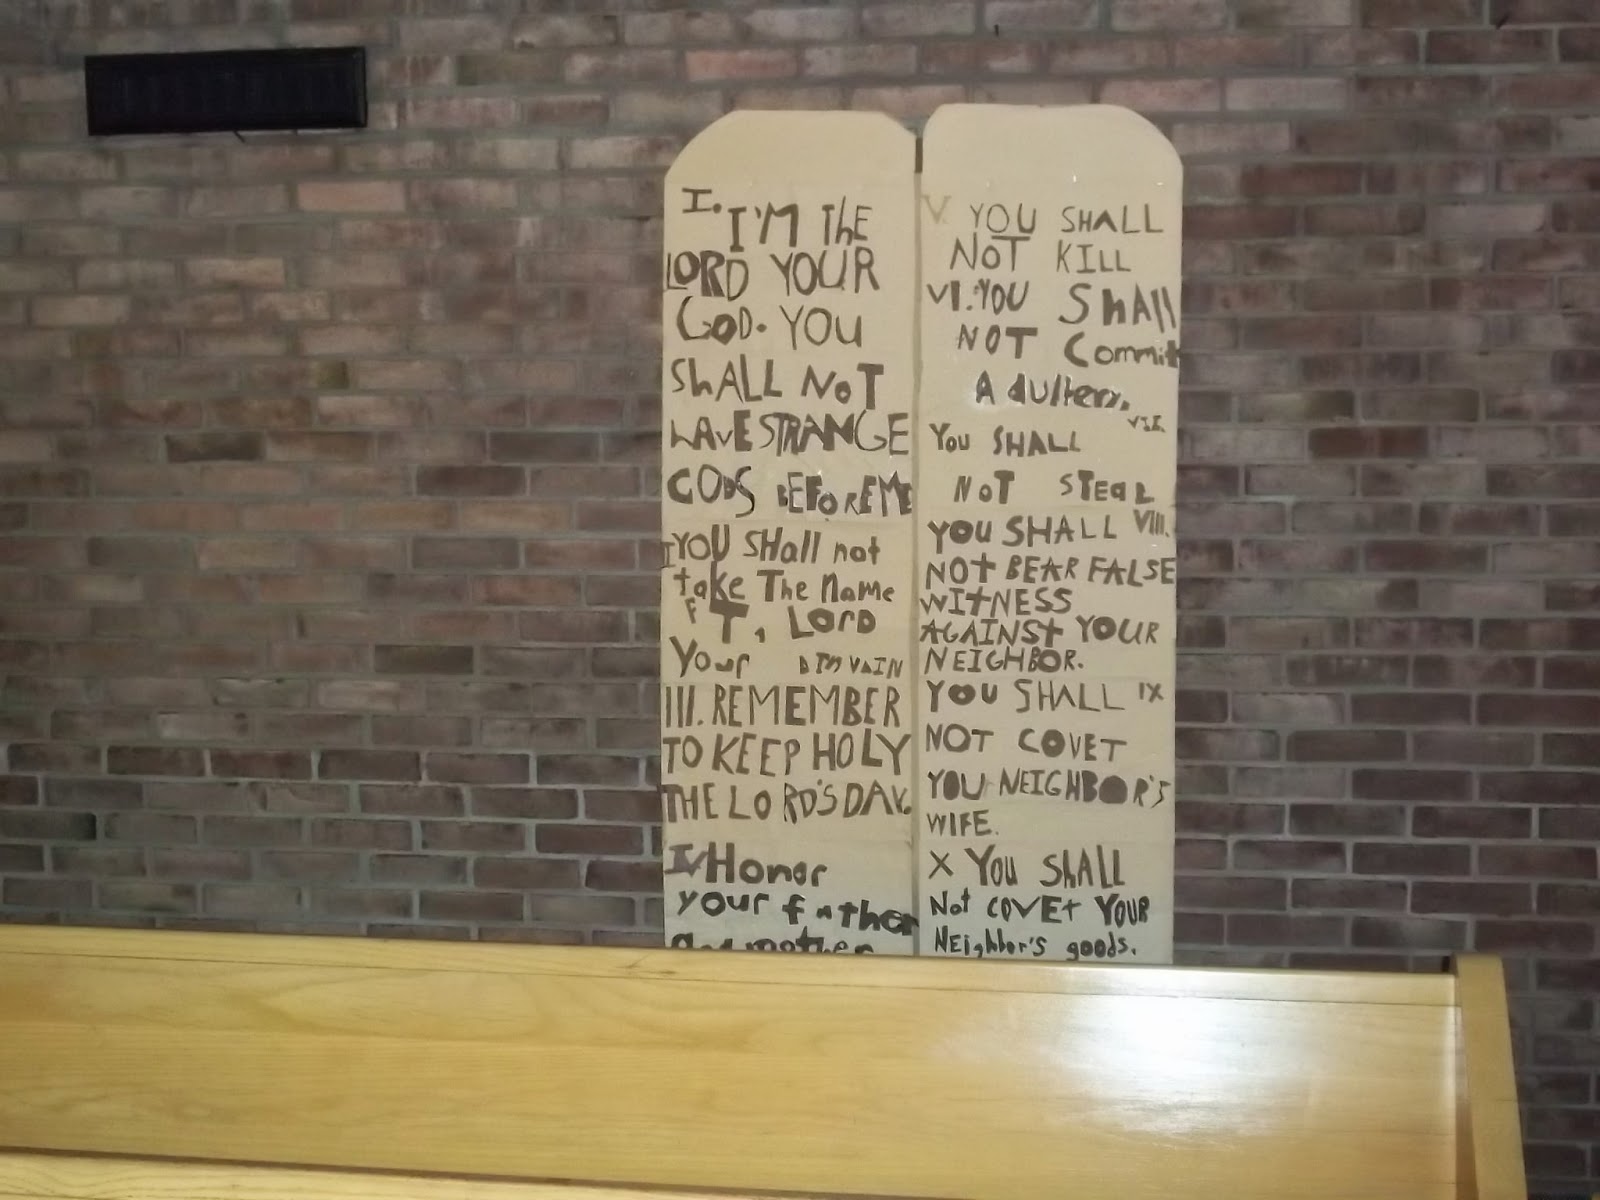 I.
I'M ThE
LORD YOUR
GOD. YOU
ShALL NoT
hAvE STRANGE
GODS BEFORE ME
YOU SHall not
take The Name
F T, LORD
Your VAIN
III. REMEMBER
TO KEEP HOLY
THE LORD'S DAY.
IV Honor
your father
and mother
V. YOU SHALL
NOT KILL
VI. YOU ShAll
NOT Commit
Adultery.
VII.
You SHALL
NoT STEaL
YOU SHALL VIII.
NOt BEAR FALSE
WItNESS
AGAINSt YOUR
NEIGHBOR.
YOU SHALL IX
NOT COVET
YOU NEIGHBOR'S
WIFE.
X YOU ShALL
Not COVEt YOUR
NEighbor's goods.